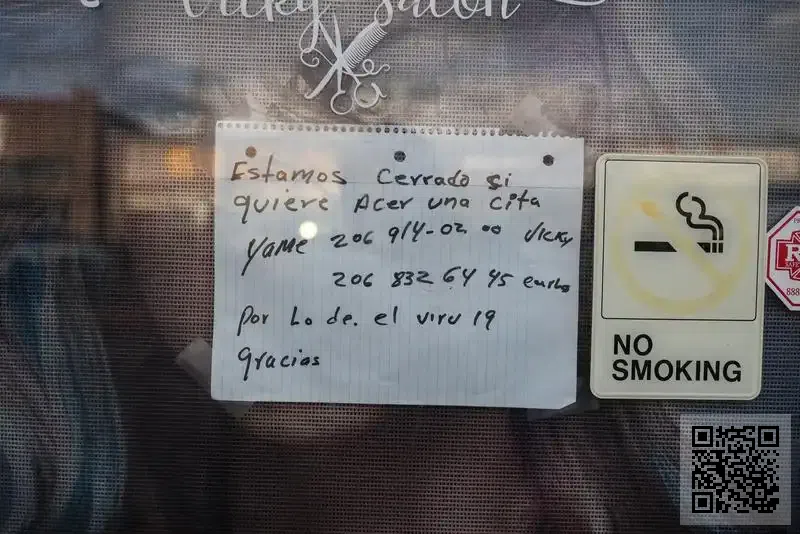 Vicky Salon
Estamos Cerrado si
quiere Acer una cita
Yame 206 914-02 00 Vicky
206 832 64 45
Por Lo de. el viru 19
gracias
NO
SMOKING